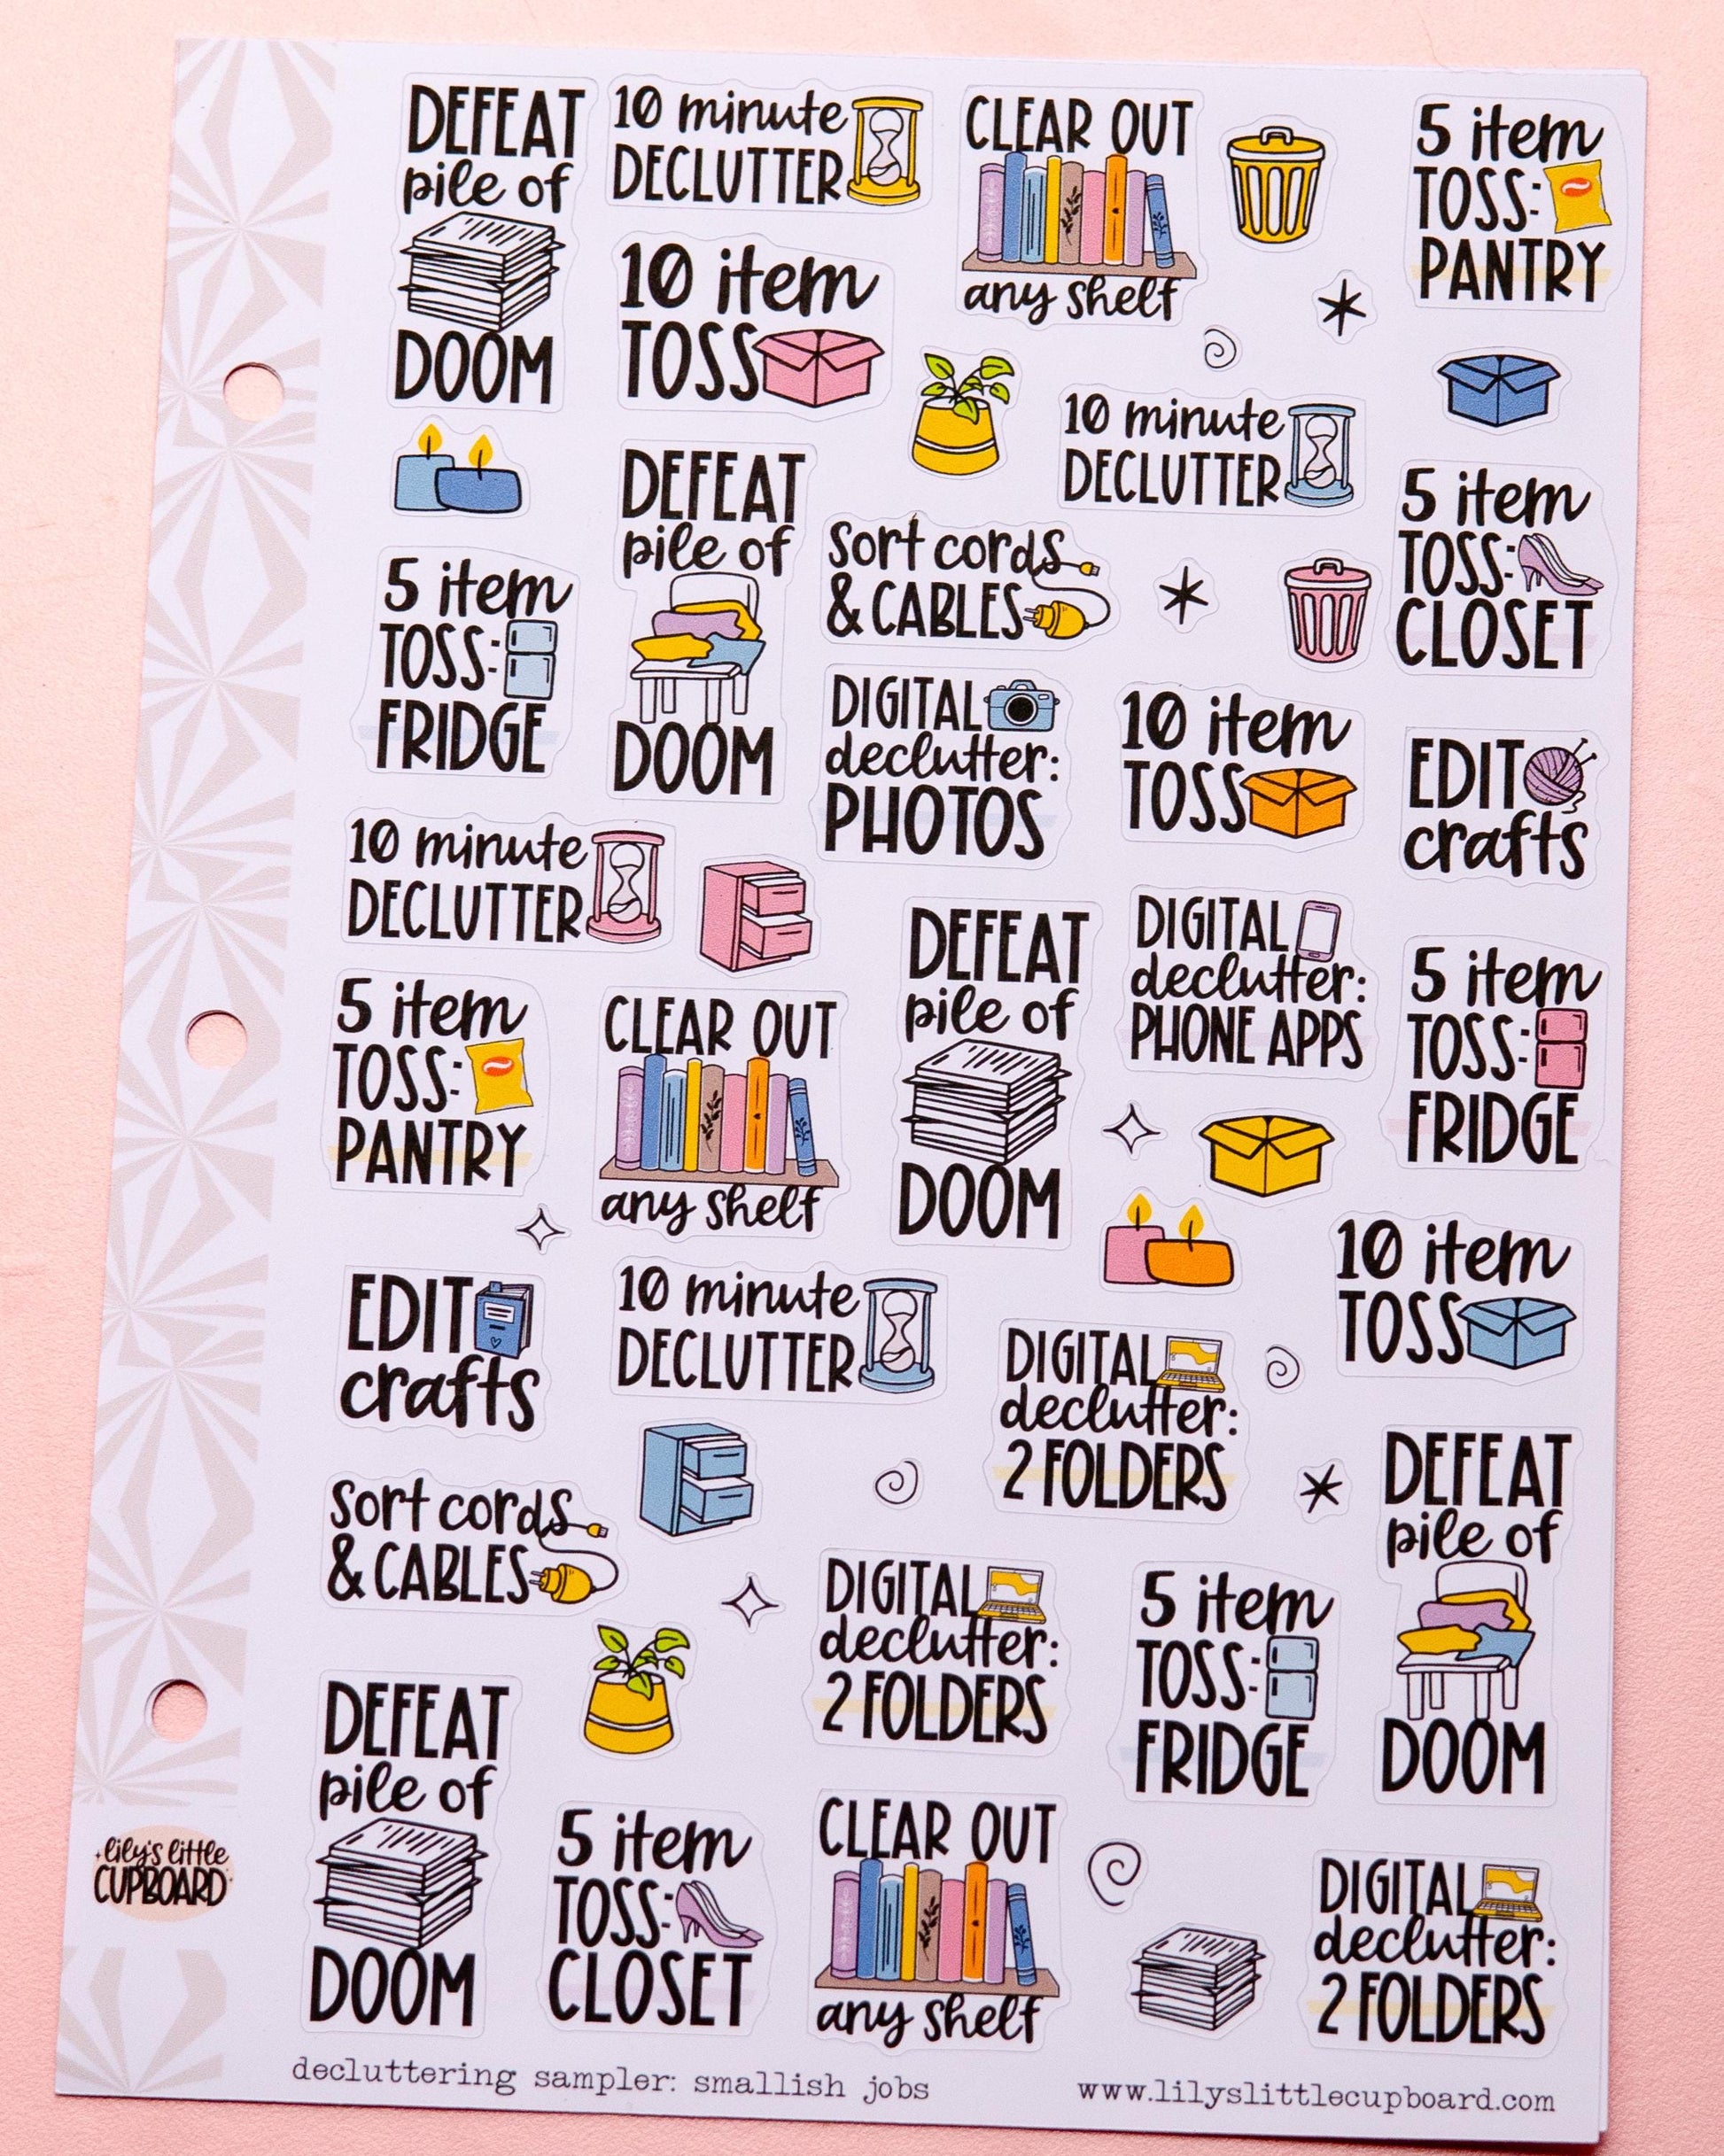 DEFEAT
pile of
DOOM
10 minute
DECLUTTER
CLEAR OUT
any shelf
5 item
TOSS:
PANTRY
10 item
TOSS
10 minute
DECLUTTER
DEFEAT
pile of
DOOM
5 item
TOSS:
CLOSET
sort cords
& CABLES
5 item
TOSS:
FRIDGE
DIGITAL
declutter:
PHOTOS
10 item
TOSS
EDIT
crafts
10 minute
DECLUTTER
DEFEAT
pile of
DOOM
DIGITAL
declutter:
PHONE APPS
5 item
TOSS:
FRIDGE
5 item
TOSS:
PANTRY
CLEAR OUT
any shelf
10 item
TOSS
EDIT
crafts
10 minute
DECLUTTER
DIGITAL
declutter:
2 FOLDERS
DEFEAT
pile of
DOOM
sort cords
& CABLES
DIGITAL
declutter:
2 FOLDERS
5 item
TOSS:
FRIDGE
DEFEAT
pile of
DOOM
5 item
TOSS:
CLOSET
CLEAR OUT
any shelf
DIGITAL
declutter:
2 FOLDERS
lily's little
CUPBOARD
decluttering sampler: smallish jobs
www.lilyslittlecupboard.com